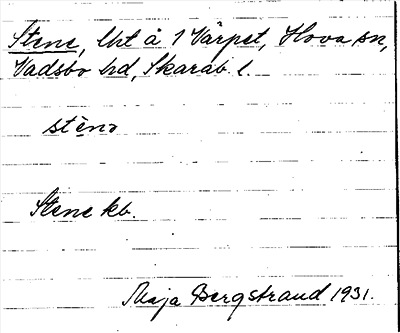 Stene, lht å 1 Värpet, Hova sn,
Vadsbo hd, Skarab. l.
stèno
Stene kb.
Maja Bergstrand 1931.